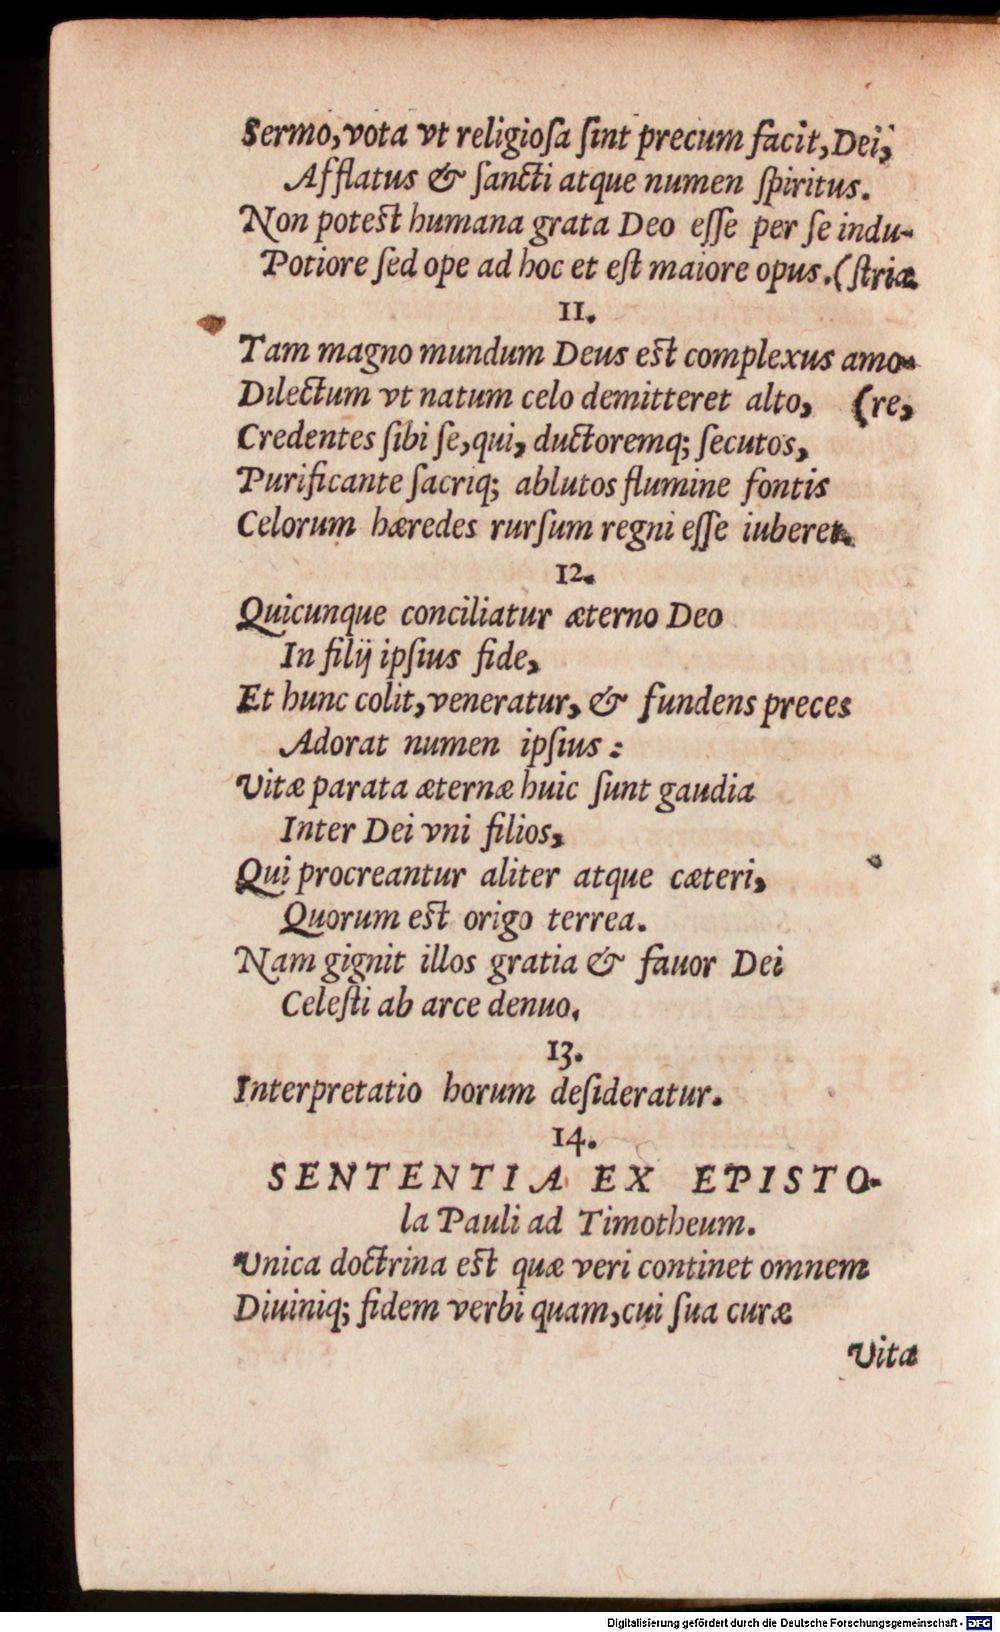 Sermo, vota vt religioſa ſint precum facit, Dei,
Afflatus & ſancti atque numen ſpiritus.
Non poteſt humana grata Deo eſſe per ſe indu-
Potiore ſed ope ad hoc et eſt maiore opus. (ſtriæ
11.
Tam magno mundum Deus eſt complexus amo-
Dilectum vt natum celo demitteret alto, (re,
Credentes ſibi ſe, qui, ductoremq; ſecutos,
Purificante ſacriq; ablutos flumine fontis
Celorum hæredes rurſum regni eſſe iuberet.
12.
Quicunque conciliatur æterno Deo
In filij ipſius fide,
Et hunc colit, veneratur, & fundens preces
Adorat numen ipſius:
Vitæ parata æternæ huic ſunt gaudia
Inter Dei vni filios,
Qui procreantur aliter atque cæteri,
Quorum eſt origo terrea.
Nam gignit illos gratia & fauor Dei
Celeſti ab arce denuo.
13.
Interpretatio horum deſideratur.
14.
SENTENTIA EX EPISTO-
la Pauli ad Timotheum.
Vnica doctrina eſt quæ veri continet omnem
Diuiniq; fidem verbi quam, cui ſua curæ
Vita
Digitalisierung gefördert durch die Deutsche Forschungsgemeinschaft - DFG